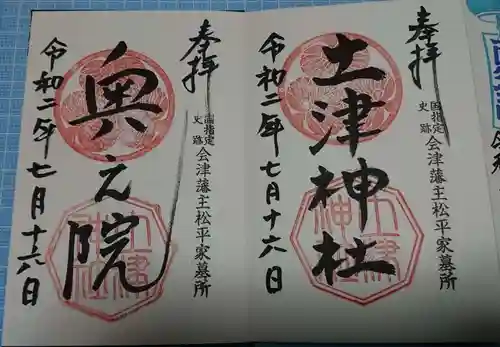 奉拝
国指定史跡
会津藩主松平家墓所
土津神社
土津神社
令和二年七月十六日
奉拝
国指定史跡
会津藩主松平家墓所
奥之院
土津神社
令和二年七月十六日